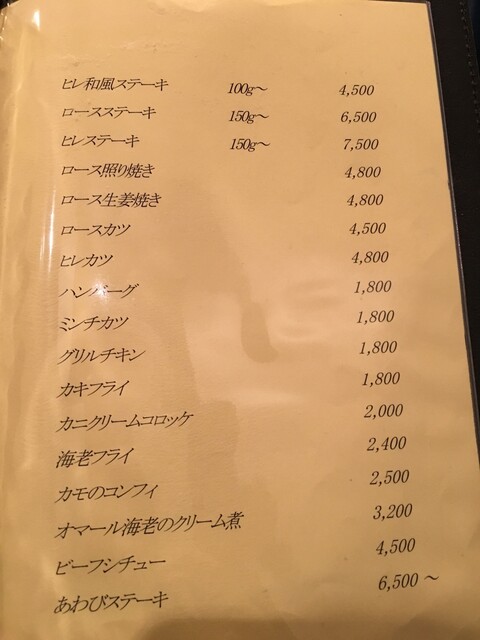 ヒレ和風ステーキ 100g～ 4,500
ロースステーキ 150g～ 6,500
ヒレステーキ 150g～ 7,500
ロース照り焼き 4,800
ロース生姜焼き 4,800
ロースカツ 4,500
ヒレカツ 4,800
ハンバーグ 1,800
ミンチカツ 1,800
グリルチキン 1,800
カキフライ 1,800
カニクリームコロッケ 2,000
海老フライ 2,400
カモのコンフィ 2,500
オマール海老のクリーム煮 3,200
ビーフシチュー 4,500
あわびステーキ 6,500～